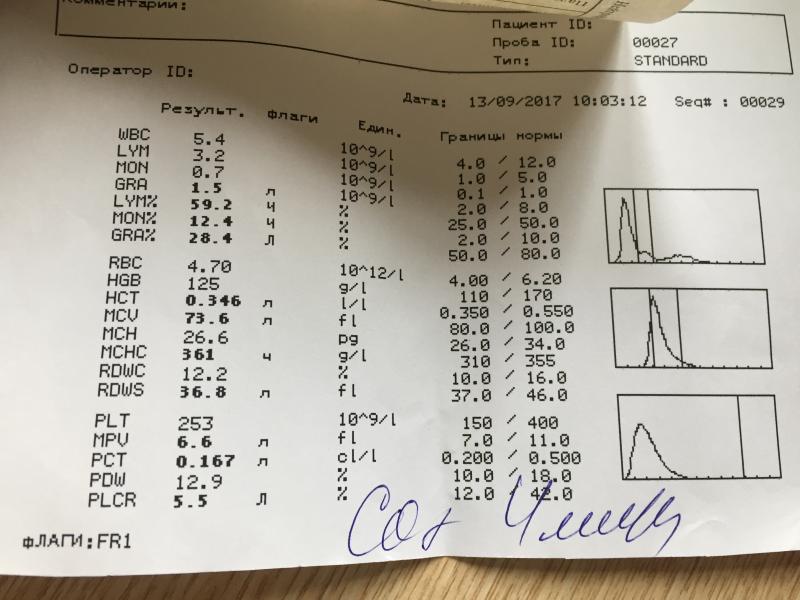 Комментарии:
Пациент ID:
Проба ID: 00027
Тип: STANDARD
Оператор ID:
Дата: 13/09/2017 10:03:12 Seq# : 00029
Результ. флаги Един. Границы нормы
WBC 5.4 10^9/l 4.0 / 12.0
LYM 3.2 10^9/l 1.0 / 5.0
MON 0.7 10^9/l 0.1 / 1.0
GRA 1.5 л 10^9/l 2.0 / 8.0
LYM% 59.2 ч % 25.0 / 50.0
MON% 12.4 ч % 2.0 / 10.0
GRA% 28.4 л % 50.0 / 80.0
RBC 4.70 10^12/l 4.00 / 6.20
HGB 125 g/l 110 / 170
HCT 0.346 л l/l 0.350 / 0.550
MCV 73.6 л fl 80.0 / 100.0
MCH 26.6 pg 26.0 / 34.0
MCHC 361 ч g/l 310 / 355
RDWC 12.2 % 10.0 / 16.0
RDWS 36.8 л fl 37.0 / 46.0
PLT 253 10^9/l 150 / 400
MPV 6.6 л fl 7.0 / 11.0
PCT 0.167 л cl/l 0.200 / 0.500
PDW 12.9 % 10.0 / 18.0
PLCR 5.5 л % 12.0 / 42.0
фЛАГИ:FR1